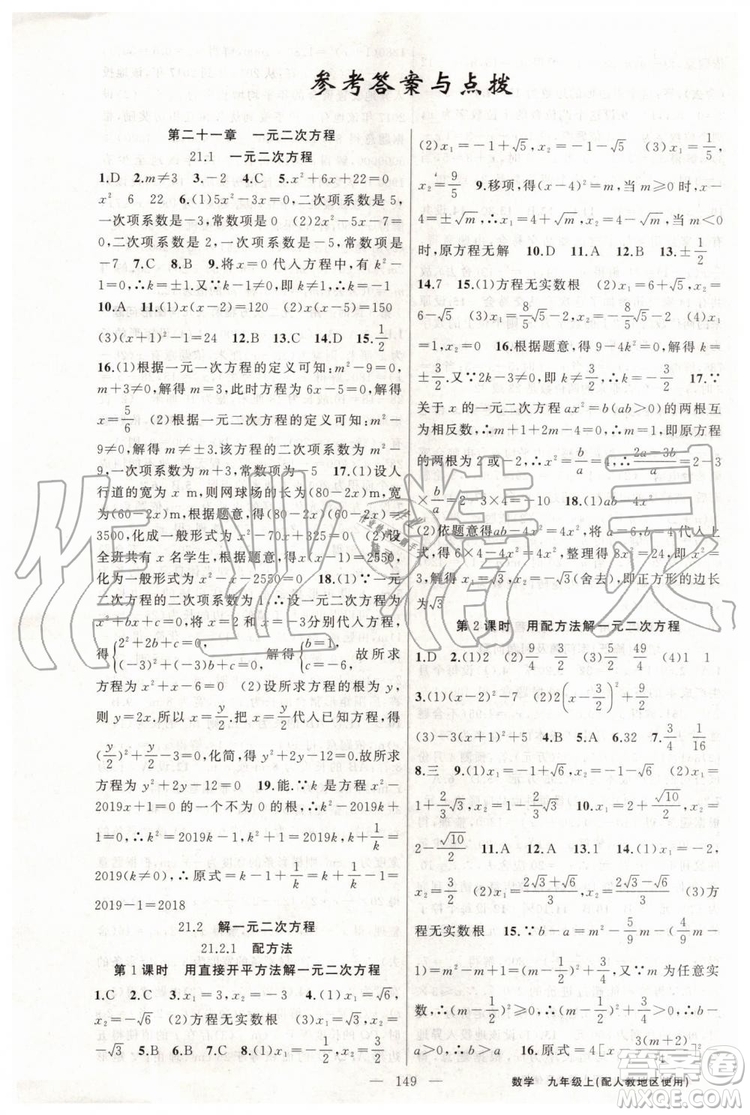 参考答案与点拨
第二十一章 一元二次方程
21.1 一元二次方程
1.D 2.m≠3 3.-2 4.C 5.x²+6x+22=0
x² 6 22 6.(1)5x²-3x=0,二次项系数是5,
一次项系数是-3,常数项是0 (2)2x²-5x-7=
0,二次项系数是2,一次项系数是-5,常数项是
-7 7.C 8.B 9.将x=0代入方程,有k²-
1=0,∴k=±1.又∵k-1≠0,即k≠1,∴k=-1
10.A 11.(1)x(x-2)=120 (2)x(x-5)=150
(3)(x+1)²-1=24 12.B 13.C 14.D 15.1/2
16.(1)根据一元一次方程的定义可知:m²-9=
0,m+3≠0,解得m=3,此时方程为6x-5=0,解得
x=5/6 (2)根据一元二次方程的定义可知:m²-
9≠0,解得m≠±3.该方程的二次项系数为m²-
9,一次项系数为m+3,常数项为-5 17.(1)设人
行道的宽为x m,则网球场的长为(80-2x)m,
宽为(60-2x)m,由题意,得(60-2x)(80-2x)=
3500,化成一般形式为x²-70x+325=0 (2)设
全班共有x名学生,根据题意,得x(x-1)=2550,
化为一般形式为x²-x-2550=0 18.(1)∵一元
二次方程的二次项系数为1,∴设一元二次方程为
x²+bx+c=0,∵一元二次方程的两个根是2和-3,
∴{2²+2b+c=0, (-3)²-3b+c=0, 解得{b=1, c=-6. 故所求
方程为x²+x-6=0 (2)设所求方程的根为y,
则y=2x.所以x=y/2.把x=y/2代入已知方程,得
(y/2)²+y/2-3=0,化简,得y²+2y-12=0.故所求
方程为y²+2y-12=0 19.能.∵k是方程x²-
2019x+1=0的一个不为0的根,∴k²-2019k+
1=0,∴k²=2019k-1,k²+1=2019k,k+1/k=
2019(k≠0),∴原式=k²-2018k+1/k=k+1/k-1=
2019-1=2018
21.2 解一元二次方程
21.2.1 配方法
第1课时 用直接开平方法解一元二次方程
1.C 2.C 3.x₁=3,x₂=-3 4.(1)x₁=√6,
x₂=-√6 (2)方程无实数根 (3)x₁=√3,x₂=
-√3 5.B 6.A 7.B 8.(1)x₁=1,x₂=-3
(2)x₁=-1+√5,x₂=-1-√5 (3)x₁=1/5,
x₂=9/5 9.移项,得(x-4)²=m,当m≥0时,x-
4=±√m,∴x₁=4+√m,x₂=4-√m;当m<0
时,原方程无解 10.D 11.A 12.A 13.±1/2
14.7 15.(1)方程无实数根 (2)x₁=6+√5,x₂=
6-√5 (3)x₁=8/5√5-2,x₂=-8/5√5-2 (4)x₁=
-1,x₂=1/3 16.根据题意,得9-4k²=4,解得k=
±√5/2.又∵k-√5/2≠0,即k≠√5/2,∴k=-√5/2 17.∵
关于x的一元二次方程ax²=b(ab>0)的两根互
为相反数,∴m+1+2m-4=0,解得m=1,∴方程
的两根为2或-2,∴x²=b/a=4,∴√(b/a)=2,∴2-3
×√(b/a)=2-3×2=-4 18.(1)ab-4x²
(2)依题意得ab-4x²=4x²,将a=6,b=4代入上
式,得6×4-4x²=4x²,整理得x²=3,解得x₁=
√3,x₂=-√3(舍去),即正方形的边长为
√3
第2课时 用配方法解一元二次方程
1.D 2.(1)1 1 (2)9/4 3/2 (3)5/2 49/4 (4)1 1
3.(1)(x-2)²-7 (2)2(x-3/2)²+1/2
(3)-(x-1)²+4 4.B 5.A 6.A 7.3/4 1/16
8.三 9.(1)x₁=1,x₂=-3 (2)x₁=
1+2/3√3,x₂=1-2/3√3 10.(1)x₁=2+√10/2,x₂=2
-√10/2 (2)x₁=-1,x₂=3 11.A 12.B 13.1
14.(1)x₁=2,x₂=1 (2)x₁=(2√3+√6)/3,x₂=(2√3-√6)/3 (3)方
程无实数根 15.∵b-a=m²-m-(m-1)=
m²-2m+1=(m-1)²≥0,∴b≥a
149
数学 九年级上(配人教地区使用)